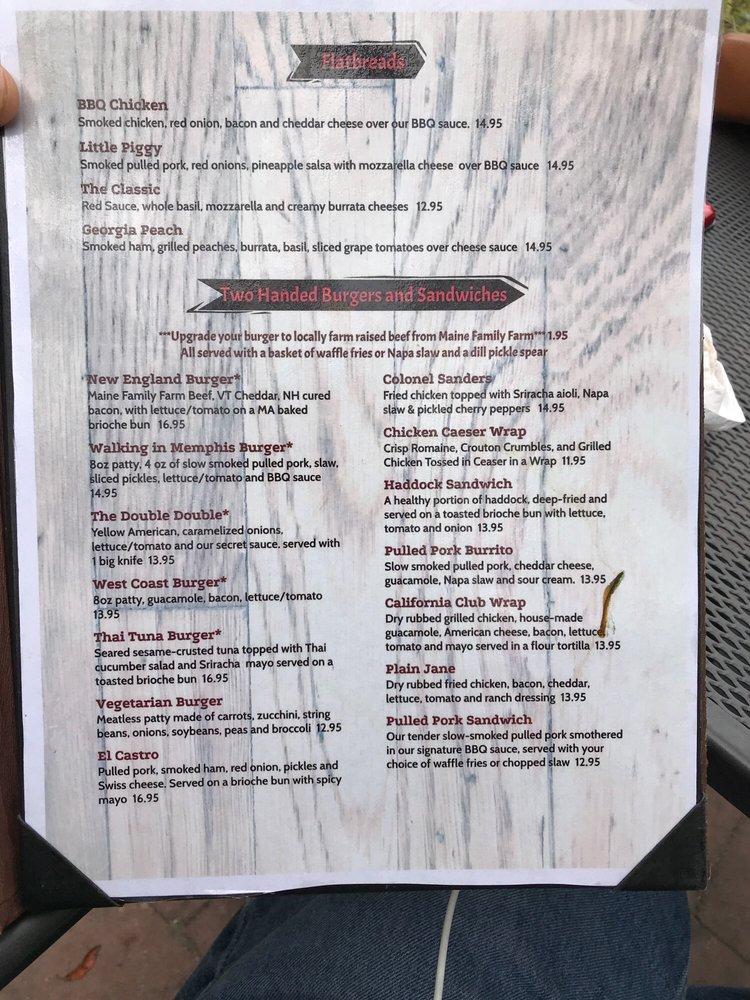 Flatbreads
BBQ Chicken
Smoked chicken, red onion, bacon and cheddar cheese over our BBQ sauce. 14.95
Little Piggy
Smoked pulled pork, red onions, pineapple salsa with mozzarella cheese over BBQ sauce 14.95
The Classic
Red Sauce, whole basil, mozzarella and creamy burrata cheeses 12.95
Georgia Peach
Smoked ham, grilled peaches, burrata, basil, sliced grape tomatoes over cheese sauce 14.95
Two Handed Burgers and Sandwiches
***Upgrade your burger to locally farm raised beef from Maine Family Farm*** 1.95
All served with a basket of waffle fries or Napa slaw and a dill pickle spear
New England Burger*
Maine Family Farm Beef, VT Cheddar, NH cured
bacon, with lettuce/tomato on a MA baked
brioche bun 16.95
Walking in Memphis Burger*
8oz patty, 4 oz of slow smoked pulled pork, slaw,
sliced pickles, lettuce/tomato and BBQ sauce
14.95
The Double Double*
Yellow American, caramelized onions,
lettuce/tomato and our secret sauce. served with
1 big knife 13.95
West Coast Burger*
8oz patty, guacamole, bacon, lettuce/tomato
13.95
Thai Tuna Burger*
Seared sesame-crusted tuna topped with Thai
cucumber salad and Sriracha mayo served on a
toasted brioche bun 16.95
Vegetarian Burger
Meatless patty made of carrots, zucchini, string
beans, onions, soybeans, peas and broccoli 12.95
El Castro
Pulled pork, smoked ham, red onion, pickles and
Swiss cheese. Served on a brioche bun with spicy
mayo 16.95
Colonel Sanders
Fried chicken topped with Sriracha aioli, Napa
slaw & pickled cherry peppers 14.95
Chicken Caeser Wrap
Crisp Romaine, Crouton Crumbles, and Grilled
Chicken Tossed in Ceaser in a Wrap 11.95
Haddock Sandwich
A healthy portion of haddock, deep-fried and
served on a toasted brioche bun with lettuce,
tomato and onion 13.95
Pulled Pork Burrito
Slow smoked pulled pork, cheddar cheese,
guacamole, Napa slaw and sour cream. 13.95
California Club Wrap
Dry rubbed grilled chicken, house-made
guacamole, American cheese, bacon, lettuce,
tomato and mayo served in a flour tortilla 13.95
Plain Jane
Dry rubbed fried chicken, bacon, cheddar,
lettuce, tomato and ranch dressing 13.95
Pulled Pork Sandwich
Our tender slow-smoked pulled pork smothered
in our signature BBQ sauce, served with your
choice of waffle fries or chopped slaw 12.95